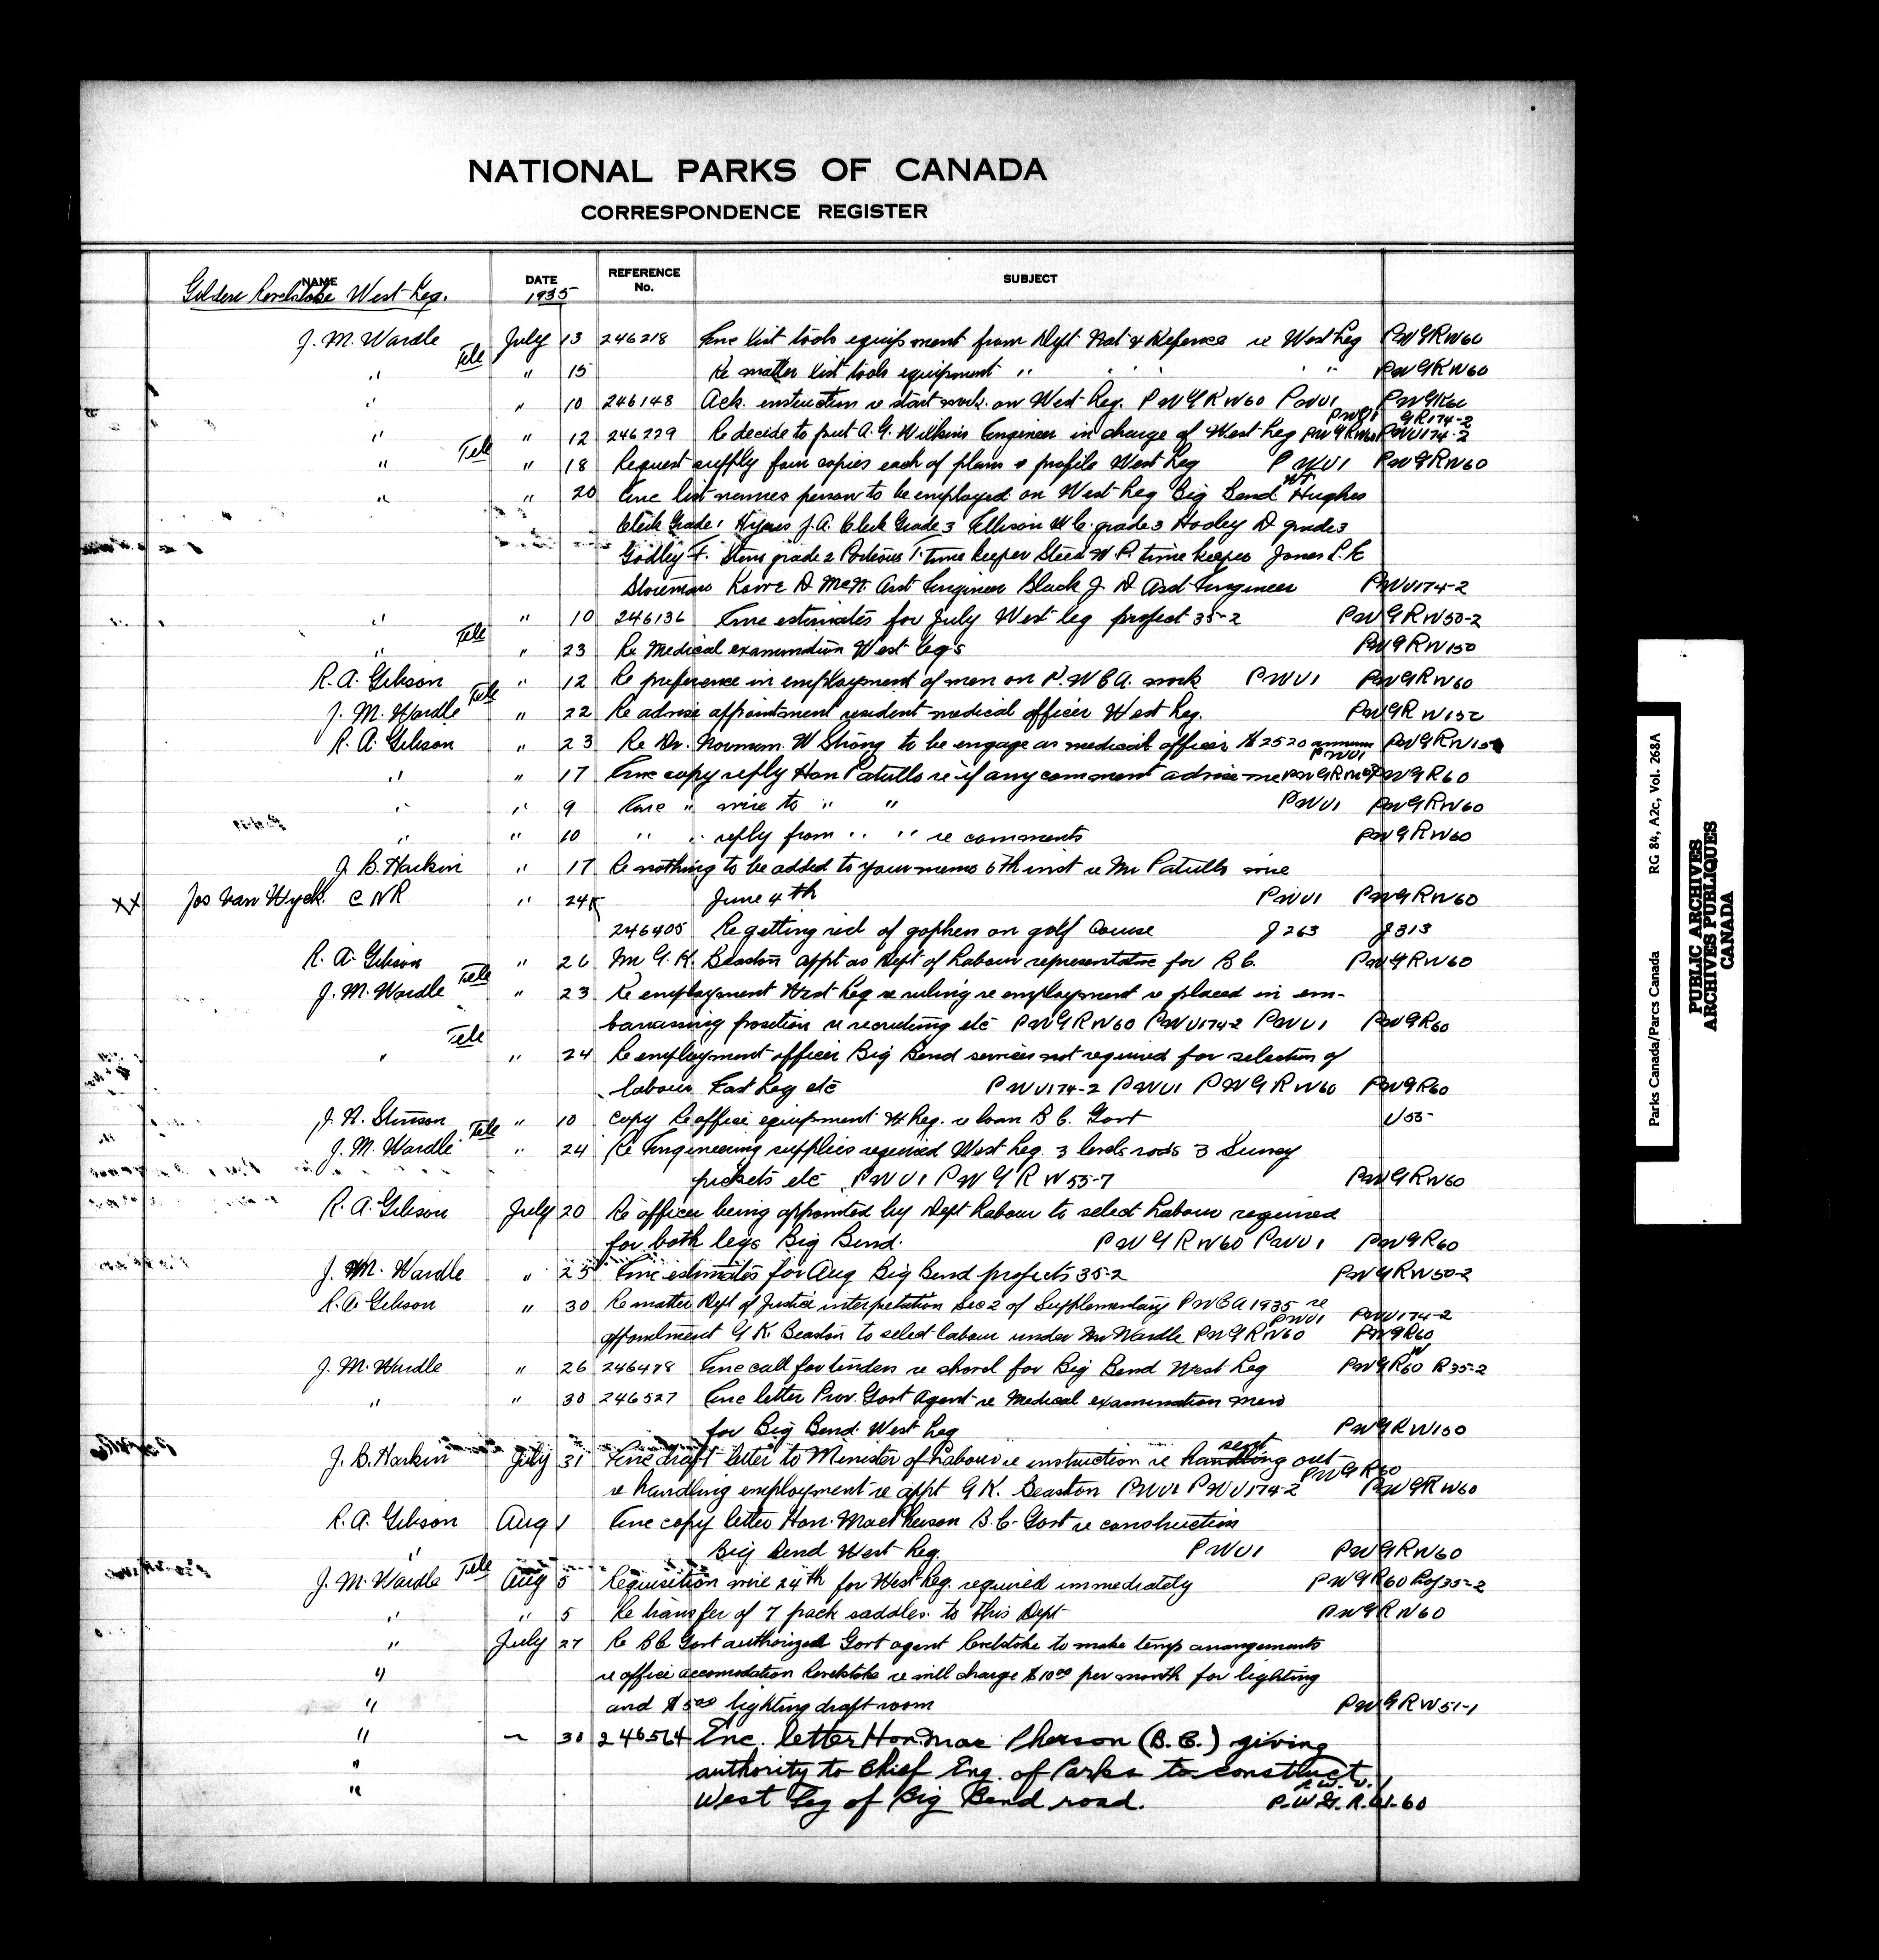 NATIONAL PARKS OF CANADA
CORRESPONDENCE REGISTER
NAME DATE REFERENCE No. SUBJECT
Golden Revelstoke West Leg. 1935
J. M. Wardle Tele July 13 246218 Enc list tools equipment from Dept Nat'l Defence re West Leg PWGRW60
" " 15 Re matter list tools equipment " " " " PWGRW60
" " 10 246148 Ack. instruction re start work on West Leg. PWGRW60 PWU1 PWGR60
PWU1 GR174-2
" Tele " 12 246229 Re decide to put A. G. Wilkins Engineer in charge of West Leg PWGRW60 PWU174-2
" " 18 Request supply four copies each of plans & profile West Leg PWU1 PWGRW60
" " 20 Enc list names person to be employed on West Leg Big Bend Hughes
Clerk Grade 1 Hynes J. A. Clerk Grade 3 Ellison W C. grade 3 Hooley D grade 3
Godley F. Steno grade 2 Porteous T. time keeper Steed W. P. time keeper Jones L. E
Storeman Kowe D McN. Asst Engineer Black J. D Asst Engineer PWU174-2
" Tele " 10 246136 Enc estimates for July West leg project 35-2 PWGRW50-2
" " 23 Re Medical examination West Leg's PWGRW150
R. A. Gibson " 12 Re preference in employment of men on P.W.C.A. work PWU1 PWGRW60
J. M. Wardle Tele " 22 Re advise appointment resident medical officer West Leg. PWGRW150
R. A. Gibson " 23 Re Dr. Norman W Strong to be engage as medical officer $2520 annum PWGRW150
PWU1
" " 17 Enc copy reply Hon Patullo re if any comment advise me PWGRW60 PWGR60
" " 9 Enc " wire to " " PWU1 PWGRW60
" " 10 " " reply from " " re comments PWGRW60
J. B. Harkin " 17 Re nothing to be added to your memo 6th inst re Mr Patullo wire
XX Jos Van Wyck. CNR " 24 June 4th PWU1 PWGRW60
246405 Re getting rid of gophers on golf Course J263 J313
R. A. Gibson " 26 Mr G. K. Beaston appt as Dept of Labour representative for B C. PWGRW60
J. M. Wardle Tele " 23 Re employment West Leg re ruling re employment re placed in em-
barrassing position re recruiting etc PWGRW60 PWU174-2 PWU1 PWGR60
" Tele " 24 Re employment officer Big Bend services not required for selection of
labour East Leg etc PWU174-2 PWU1 PWGRW60 PWGR60
J. N. Stinson " 10 copy Re office equipment W Leg. re loan B C. Govt U55
J. M. Wardle Tele " 24 Re Engineering supplies required West Leg. 3 levels rods 3 Survey
pickets etc PWU1 PWGRW55-7 PWGRW60
R. A. Gibson July 20 Re officer being appointed by Dept Labour to select Labour required
for both legs Big Bend. PWGRW60 PWU1 PWGR60
J. M. Wardle " 25 Enc estimates for Aug Big Bend projects 35-2 PWGRW50-2
R. A. Gibson " 30 Re matter Dept of Justice interpretation Sec 2 of Supplementary PWCA 1935 re
PWU1 PWU174-2
appointment G. K. Beaston to select labour under Mr Wardle PWGRW60 PWGR60
J. M. Wardle " 26 246478 Enc call for tenders re shovel for Big Bend West Leg PWGRW60 R35-2
" " 30 246527 Enc letter Prov. Govt Agent re Medical examination men
for Big Bend West Leg PWGRW150
J. B. Harkin July 31 Enc draft letter to Minister of Labour re instruction re handling sent out
PWGR60
re handling employment re appt G K. Beaston PWU1 PWU174-2 PWGRW60
R. A. Gibson Aug 1 Enc copy letter Hon. MacPherson B.C. Govt re construction
" Big Bend West Leg. PWU1 PWGRW60
J. M. Wardle Tele Aug 5 Requisition wire 24th for West Leg. required immediately PWGR60 Proj 35-2
" " 5 Re transfer of 7 pack saddles to this Dept PWGRW60
" July 27 Re BC Govt authorized Govt agent Revelstoke to make temp arrangements
" re office accomodation Revelstoke re will charge $10.00 per month for lighting
" and $5.00 lighting draft room PWGRW51-1
" " 30 246564 Enc. letter Hon. MacPherson (B.C.) giving
" authority to Chief Eng. of Parks to construct
P.W.U.1
" West Leg of Big Bend road. P.W.G.R.W-60
Parks Canada/Parcs Canada RG 84, A2c, Vol. 268A
PUBLIC ARCHIVES
ARCHIVES PUBLIQUES
CANADA